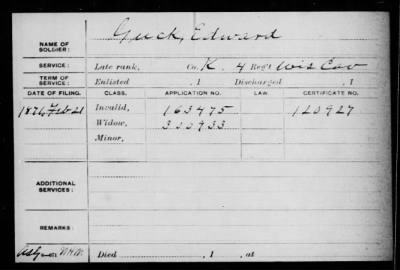 Guck, Edward
NAME OF SOLDIER:
SERVICE: Late rank, Co. K. 4 Reg't Wis Cav
TERM OF SERVICE: Enlisted , 1 Discharged , 1
DATE OF FILING. CLASS. APPLICATION NO. LAW. CERTIFICATE NO.
1876, Feb 21 Invalid, 163475 120927
Widow, 300933
Minor,
ADDITIONAL SERVICES:
REMARKS:
Died , 1 , at